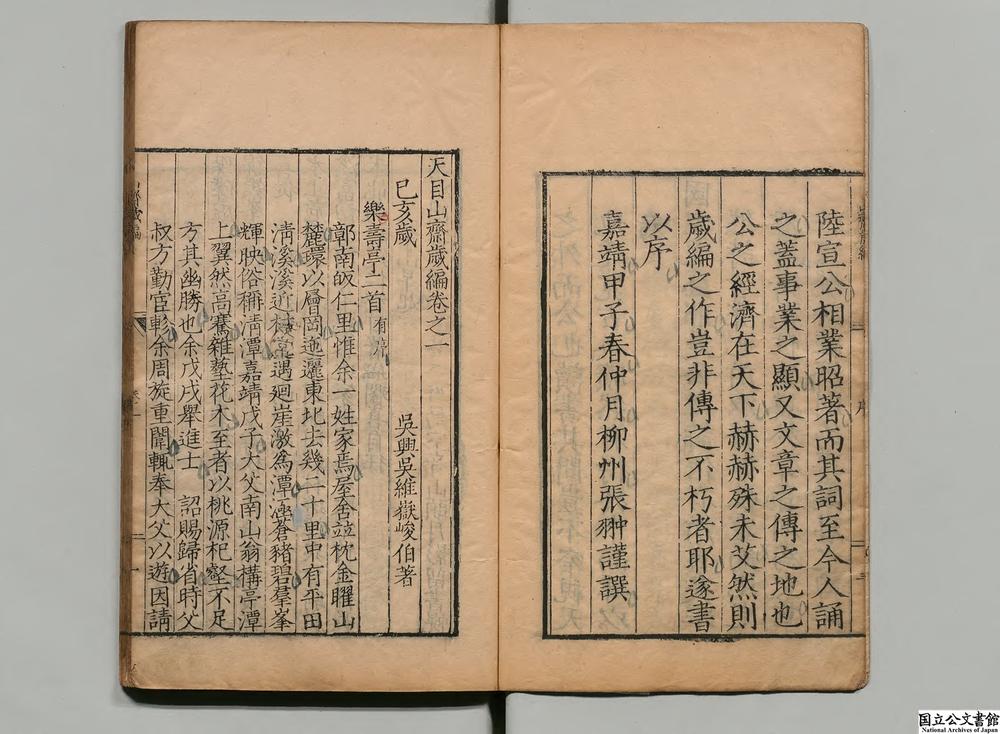 陸宣公相業昭著而其詞至今人誦
之蓋事業之顯又文章之傳之地也
公之經濟在天下赫赫殊未艾然則
歲編之作豈非傳之不朽者耶遂書
以序
嘉靖甲子春仲月柳州張翀謹譔
序
天目山齋歲編卷之一
吳興吳維嶽峻伯著
己亥歲
樂壽亭二首有序
鄣南畈仁里惟余一姓家焉屋舍竝枕金矅山
麓環以層岡迤邐東北去幾二十里中有平田
清溪溪近林當遇廻崖激為潭涵蒼豬碧羣峯
輝映俗稱清潭嘉靖戊子大父南山翁構亭潭
上翼然高騫雜蓺花木至者以桃源杞壑不足
方其幽勝也余戊戌舉進士 詔賜歸省時父
叔方勤宦轍余周旋重闈輒奉大父以遊因請
国立公文書館
National Archives of Japan